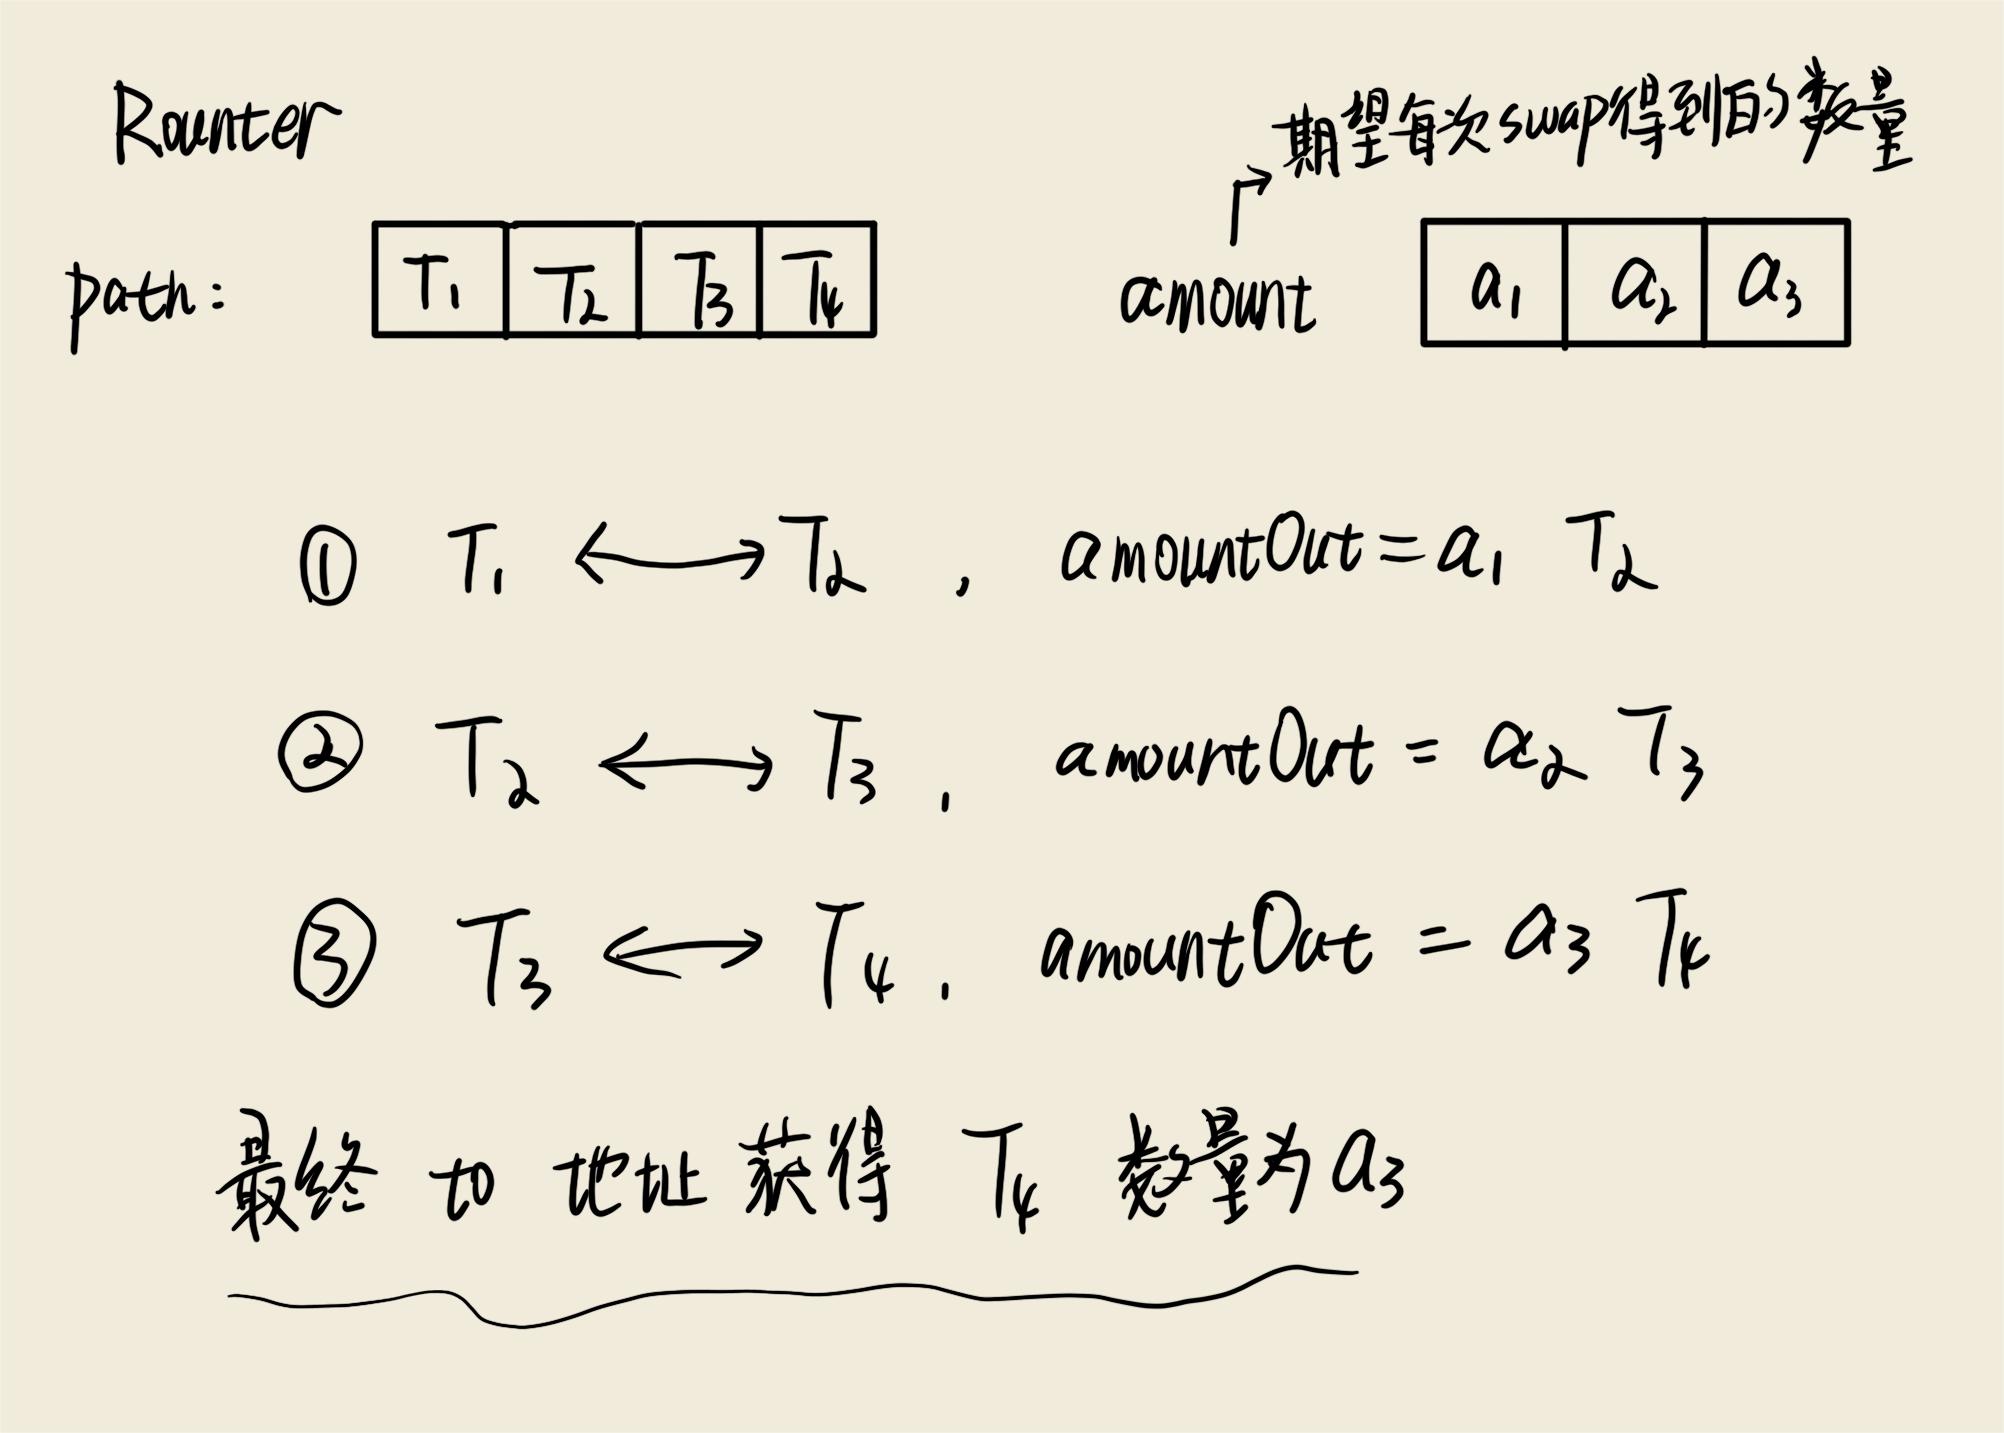 Rounter
期望每次swap得到的数量
path: T₁ T₂ T₃ T₄
amount a₁ a₂ a₃
① T₁ ⟷ T₂, amountOut = a₁ T₂
② T₂ ⟷ T₃, amountOut = a₂ T₃
③ T₃ ⟷ T₄, amountOut = a₃ T₄
最终 to 地址 获得 T₄ 数量为 a₃